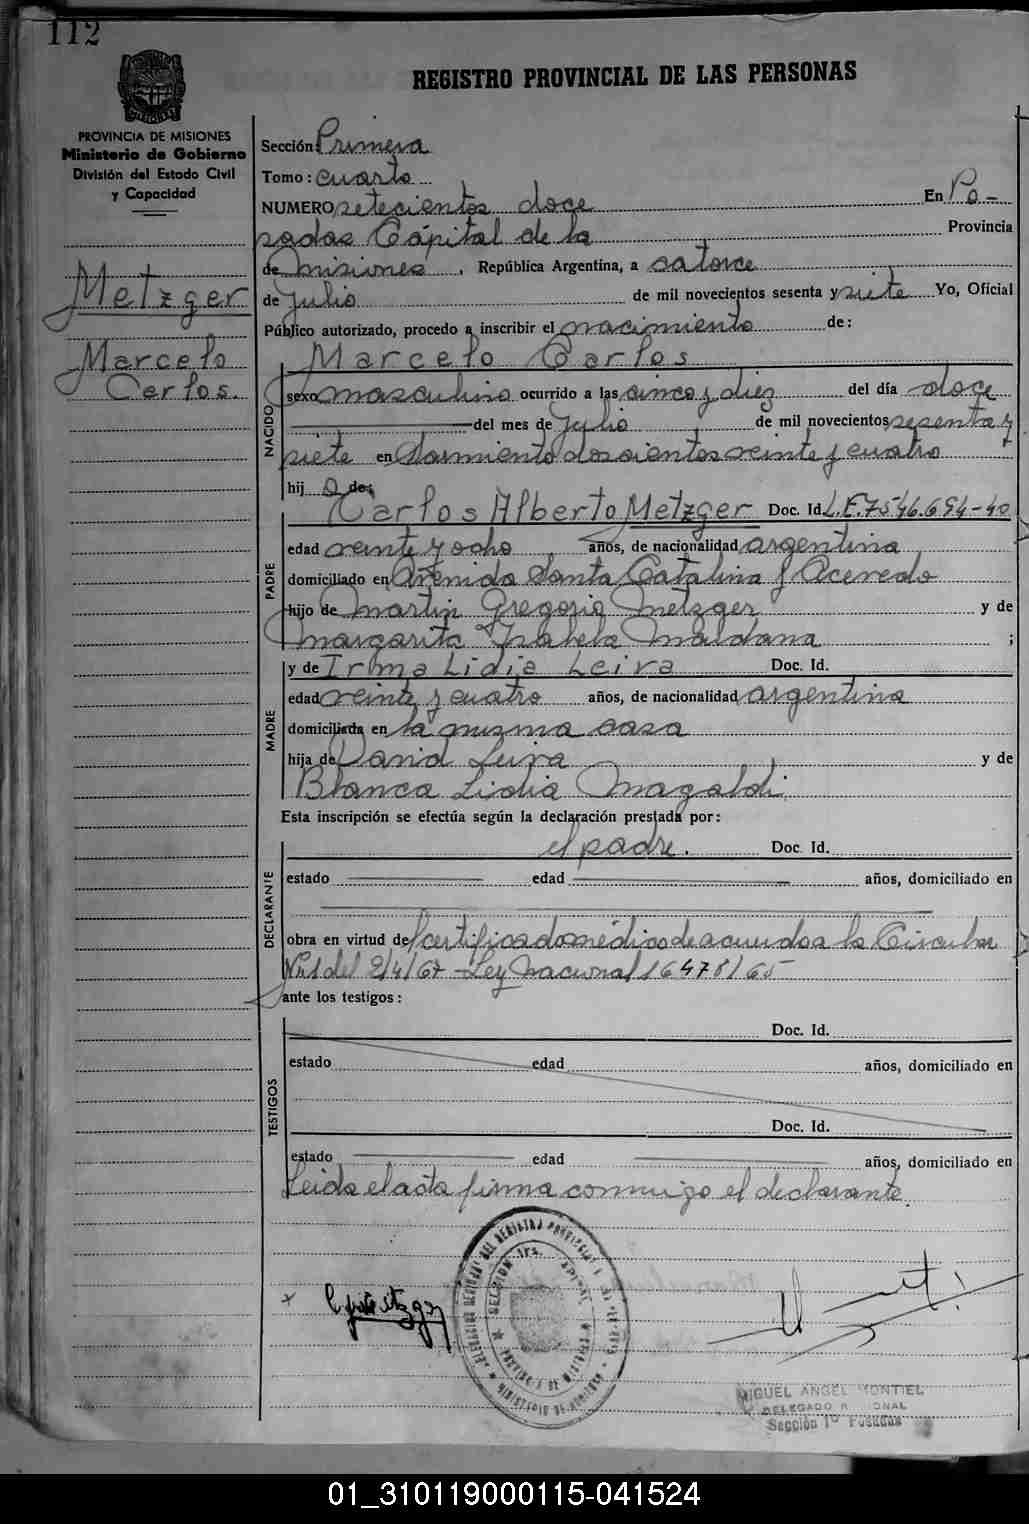 112
REGISTRO PROVINCIAL DE LAS PERSONAS
PROVINCIA DE MISIONES
Ministerio de Gobierno
División del Estado Civil
y Capacidad
Metzger
Marcelo
Carlos.
Sección Primera
Tomo: cuarto
NUMERO setecientos doce En Po-
sadas Capital de la Provincia
de Misiones, República Argentina, a catorce
de Julio de mil novecientos sesenta y siete Yo, Oficial
Público autorizado, procedo a inscribir el nacimiento de:
Marcelo Carlos
NACIDO
sexo masculino ocurrido a las cinco y diez del día doce
del mes de Julio de mil novecientos sesenta y
siete en Sarmiento doscientos veinte y cuatro
hij o de:
PADRE
Carlos Alberto Metzger Doc. Id. L.E. 7.546.694-40
edad veinte y ocho años, de nacionalidad argentina
domiciliado en Avenida Santa Catalina y Acevedo
hijo de Martin Gregorio Metzger y de
Margarita Isabela Maidana ;
MADRE
y de Irma Lidia Leiva Doc. Id.
edad veinte y cuatro años, de nacionalidad argentina
domiciliada en la misma casa
hija de David Leiva y de
Blanca Lidia Magaldi
Esta inscripción se efectúa según la declaración prestada por:
DECLARANTE
el padre. Doc. Id.
estado edad años, domiciliado en
obra en virtud de certificado médico de acuerdo a la Circular
Nº1 del 2/4/67 - Ley Nacional 16478/65
ante los testigos:
TESTIGOS
Doc. Id.
estado edad años, domiciliado en
Doc. Id.
estado edad años, domiciliado en
Leida el acta firma conmigo el declarante
MIGUEL ANGEL MONTIEL
DELEGADO
Sección 1º Posadas
01_310119000115-041524